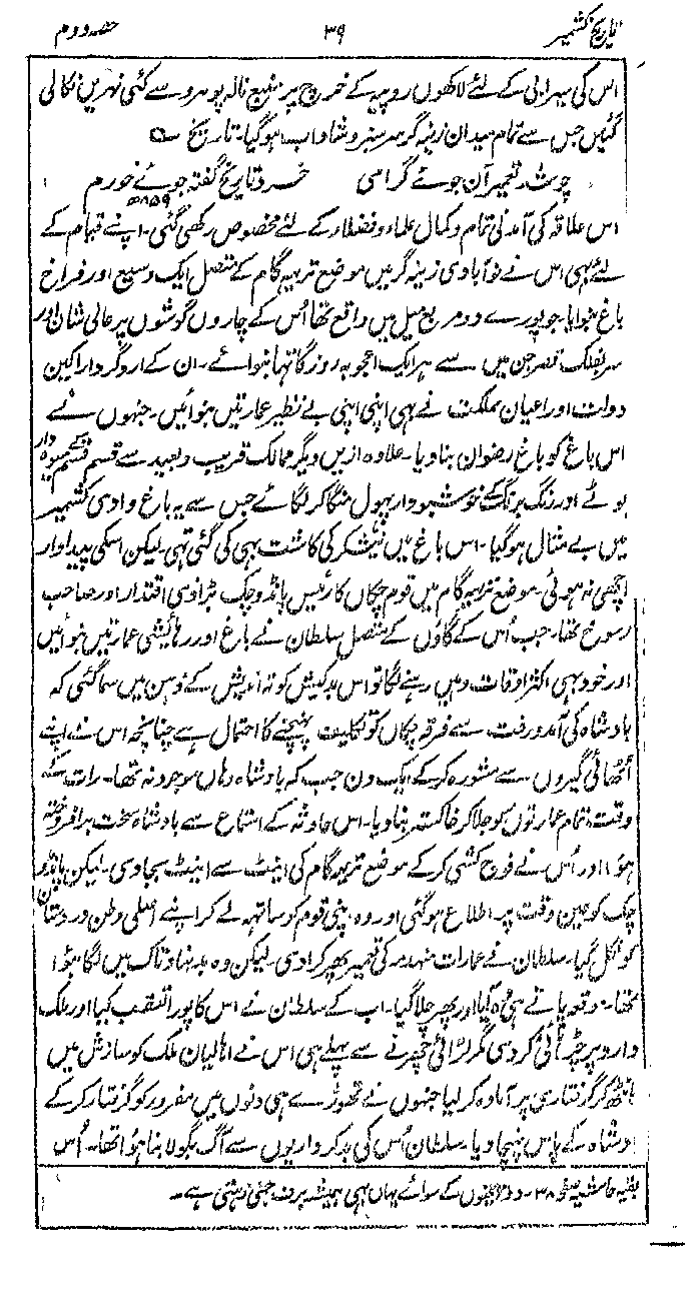 تاریخ کشمیر ۳۹ حصہ دوم
اس کی سیرابی کے لئے لاکھوں روپیہ کے خرچ پر منبع نالہ پوہرو سے کئی نہریں نکالی
گئیں جس سے تمام میدان زینہ گر سرسبز و شاداب ہوگیا۔ تاریخ ؎
چوں شد تعمیر آن جوئے گرامی خرد تاریخ گفتہ جوئے خورم
۸۵۹ھ
اس علاقہ کی آمدنی تمام و کمال علماء و فضلاء کے لئے مخصوص رکھی گئی۔ اپنے قیام کے
لئے بھی اس نے نو آبادی زینہ گر میں موضع تریہہ گام کے متصل ایک وسیع اور فراخ
باغ بنوایا۔ جو پورے دو مربع میل میں واقع تھا اُس کے چاروں گوشوں پر عالی شان اور
سر بفلک قصر جن میں سے ہر ایک اعجوبہ روزگار تہا بنوائے۔ ان کے اردگرد اراکین
دولت اور اعیان مملکت نے بہی اپنی اپنی بے نظیر عمارتیں بنوائیں۔ جنہوں نے
اس باغ کو باغ رضوان بنادیا۔ علاوہ ازیں دیگر ممالک قریب و بعید سے قسم قسم کے میوہ دار
بوٹے اور رنگ برنگ کے خوشبودار پہول منگا کر لگائے جس سے یہ باغ وادی کشمیر
میں بے مثال ہوگیا۔ اس باغ میں نیشکر کی کاشت بہی کی گئی تہی۔ لیکن اسکی پیداوار
اچھی نہ ہوئی۔ موضع تریہہ گام میں قوم چکاں کا رئیس پانڈو چک بڑا ذی اقتدار اور صاحب
رسوخ تھا۔ جب اُس کے گاؤں کے متصل سلطان نے باغ اور رہائشی عمارتیں بنوائیں
اور خود بہی اکثر اوقات وہیں رہنے لگا تو اس بدکیش کوتہ اندیش کے ذہن میں سماگئی کہ
بادشاہ کی آمدورفت سے فرقہ چکاں کو تکلیف پہنچنے کا احتمال ہے چنانچہ اس نے اپنے
اُٹھائی گیروں سے مشورہ کرکے ایک دن جب کہ بادشاہ وہاں موجود نہ تھا۔ رات کے
وقت تمام عمارتوں کو جلا کر خاکستر بنادیا۔ اس حادثہ کے استماع سے بادشاہ سخت برافروختہ
ہوا اور اُس نے فوج کشی کرکے موضع تریہہ گام کی اینٹ سے اینٹ بجادی۔ لیکن پانڈو
چک کو عین وقت پر اطلاع ہوگئی اور وہ اپنی قوم کو ساتھ لے کر اپنے اصلی وطن دردستان
کو نکل گیا۔ سلطان نے عمارات منہدمہ کی تعمیر پھر کرادی۔ لیکن وہ بدنہاد تاک میں لگا ہوا
تھا۔ موقعہ پاتے ہی وہ آیا اور پھر جلا گیا۔ اب کے سلطان نے اس کا پورا تعقب کیا اور ملک
دارو پر چڑہائی کردی مگر لڑائی چھڑنے سے پہلے ہی اس نے اہالیان ملک کو سازش میں
گانٹھ کر گرفتاری پر آمادہ کرلیا جنہوں نے تھوڑے ہی دنوں میں مفرور کو گرفتار کرکے
بادشاہ کے پاس پہنچا دیا۔ سلطان اُس کی بدکرداریوں سے آگ بگولا بنا ہوا تھا۔ اُس
بقیہ حاشیہ صفحہ ۳۸۔ دو مہینوں کے سوائے یہاں بہی ہمیشہ برف جمی رہتی ہے۔